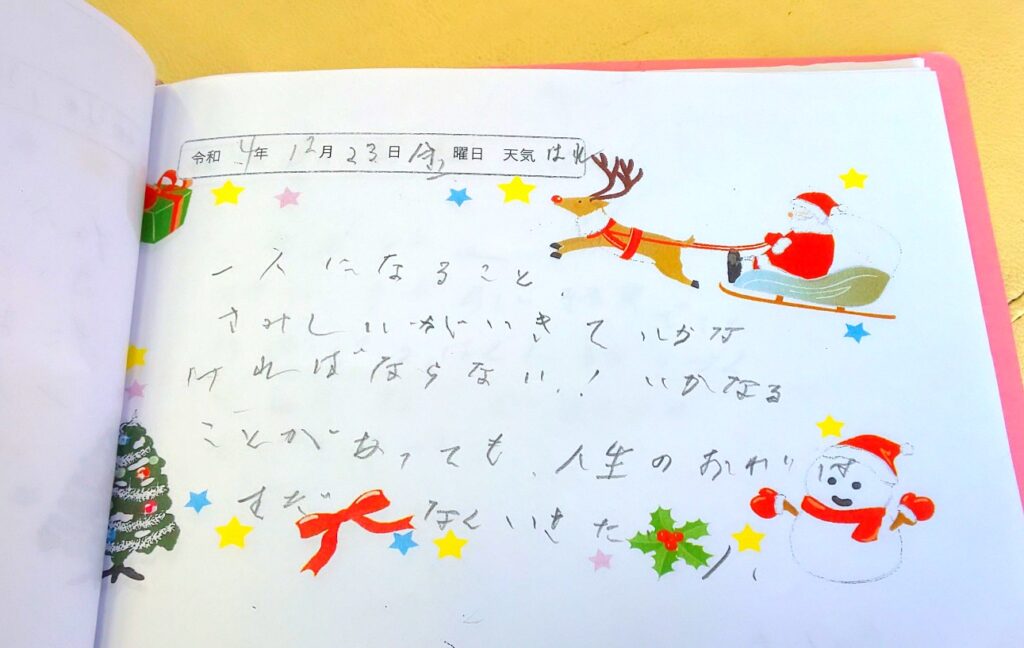 令和 4年 12月 23日 金 曜日 天気 はれ
一人になること、
さみしいがいきていかな
ければならない！いかなる
ことがあっても、人生のおわりは
まだ なくいきたい